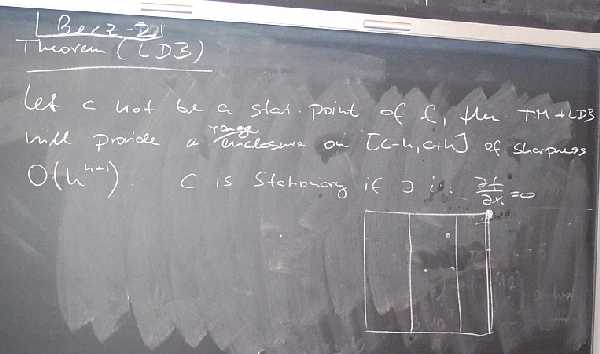 Theorem (LDB)
Let c not be a stat. point of f, then TM+LDB
will provide a range enclosure on [c-h, c+h] of sharpness
O(h^{n+1}). C is stationary if ∃ i: ∂f/∂x_i = 0